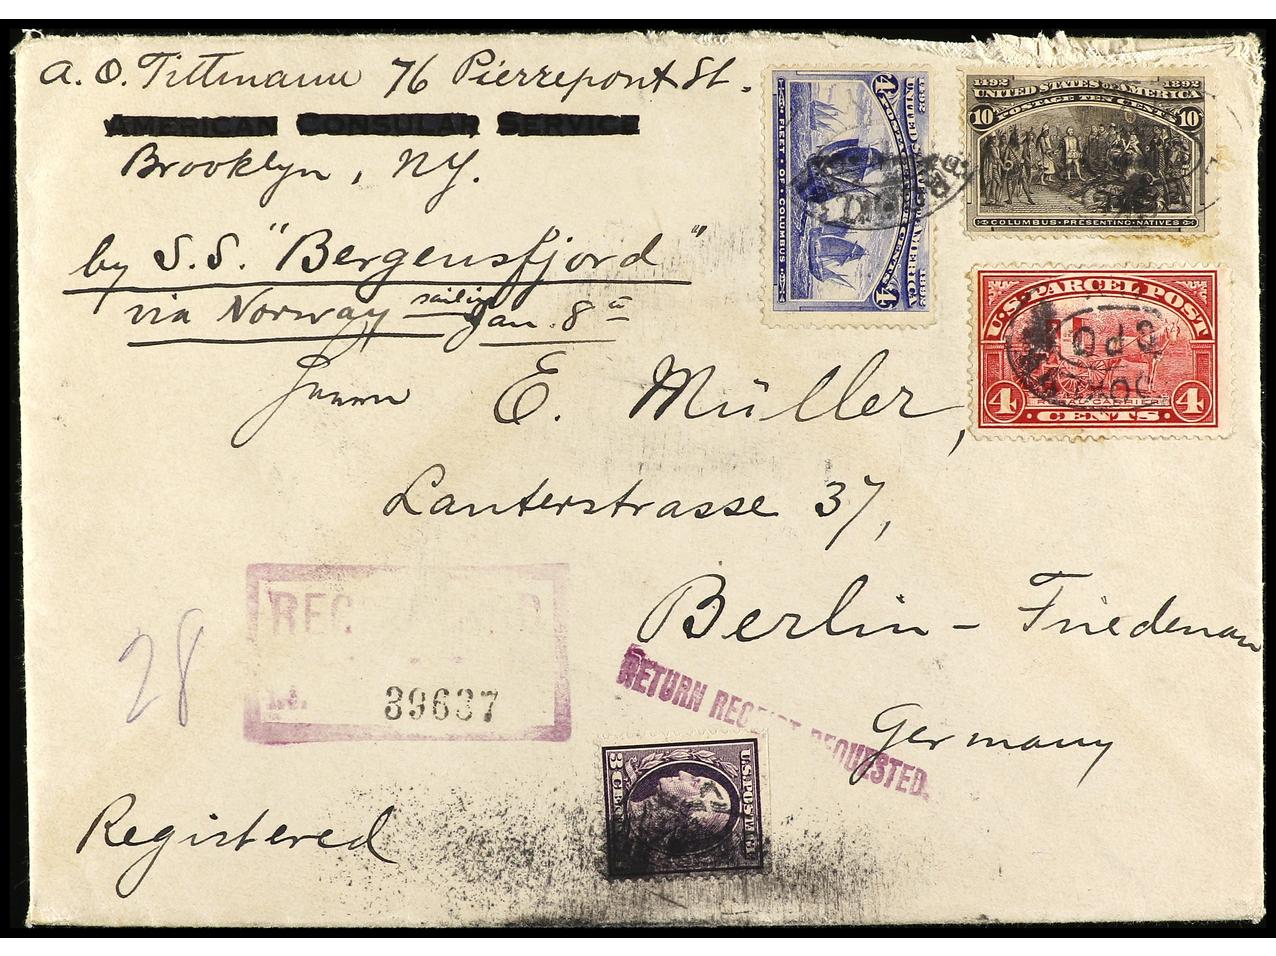 A. O. Tittmann 76 Pierrepont St.
AMERICAN CONSULAR SERVICE
Brooklyn, NY.
by S.S. "Bergensfjord"
via Norway sailing Jan. 8th
E. Müller,
Lauterstrasse 37,
Berlin – Friedenau
Germany
28
REGISTERED
39637
RETURN RECEIPT REQUESTED.
Registered
1492 UNITED STATES OF AMERICA 1892
FLEET OF COLUMBUS
4
1492 1892
UNITED STATES OF AMERICA
10 POSTAGE TEN CENTS 10
COLUMBUS PRESENTING NATIVES
U.S. PARCEL POST
RURAL CARRIER
4 CENTS 4
G.P.O.
U.S. POSTAGE
3 CENTS